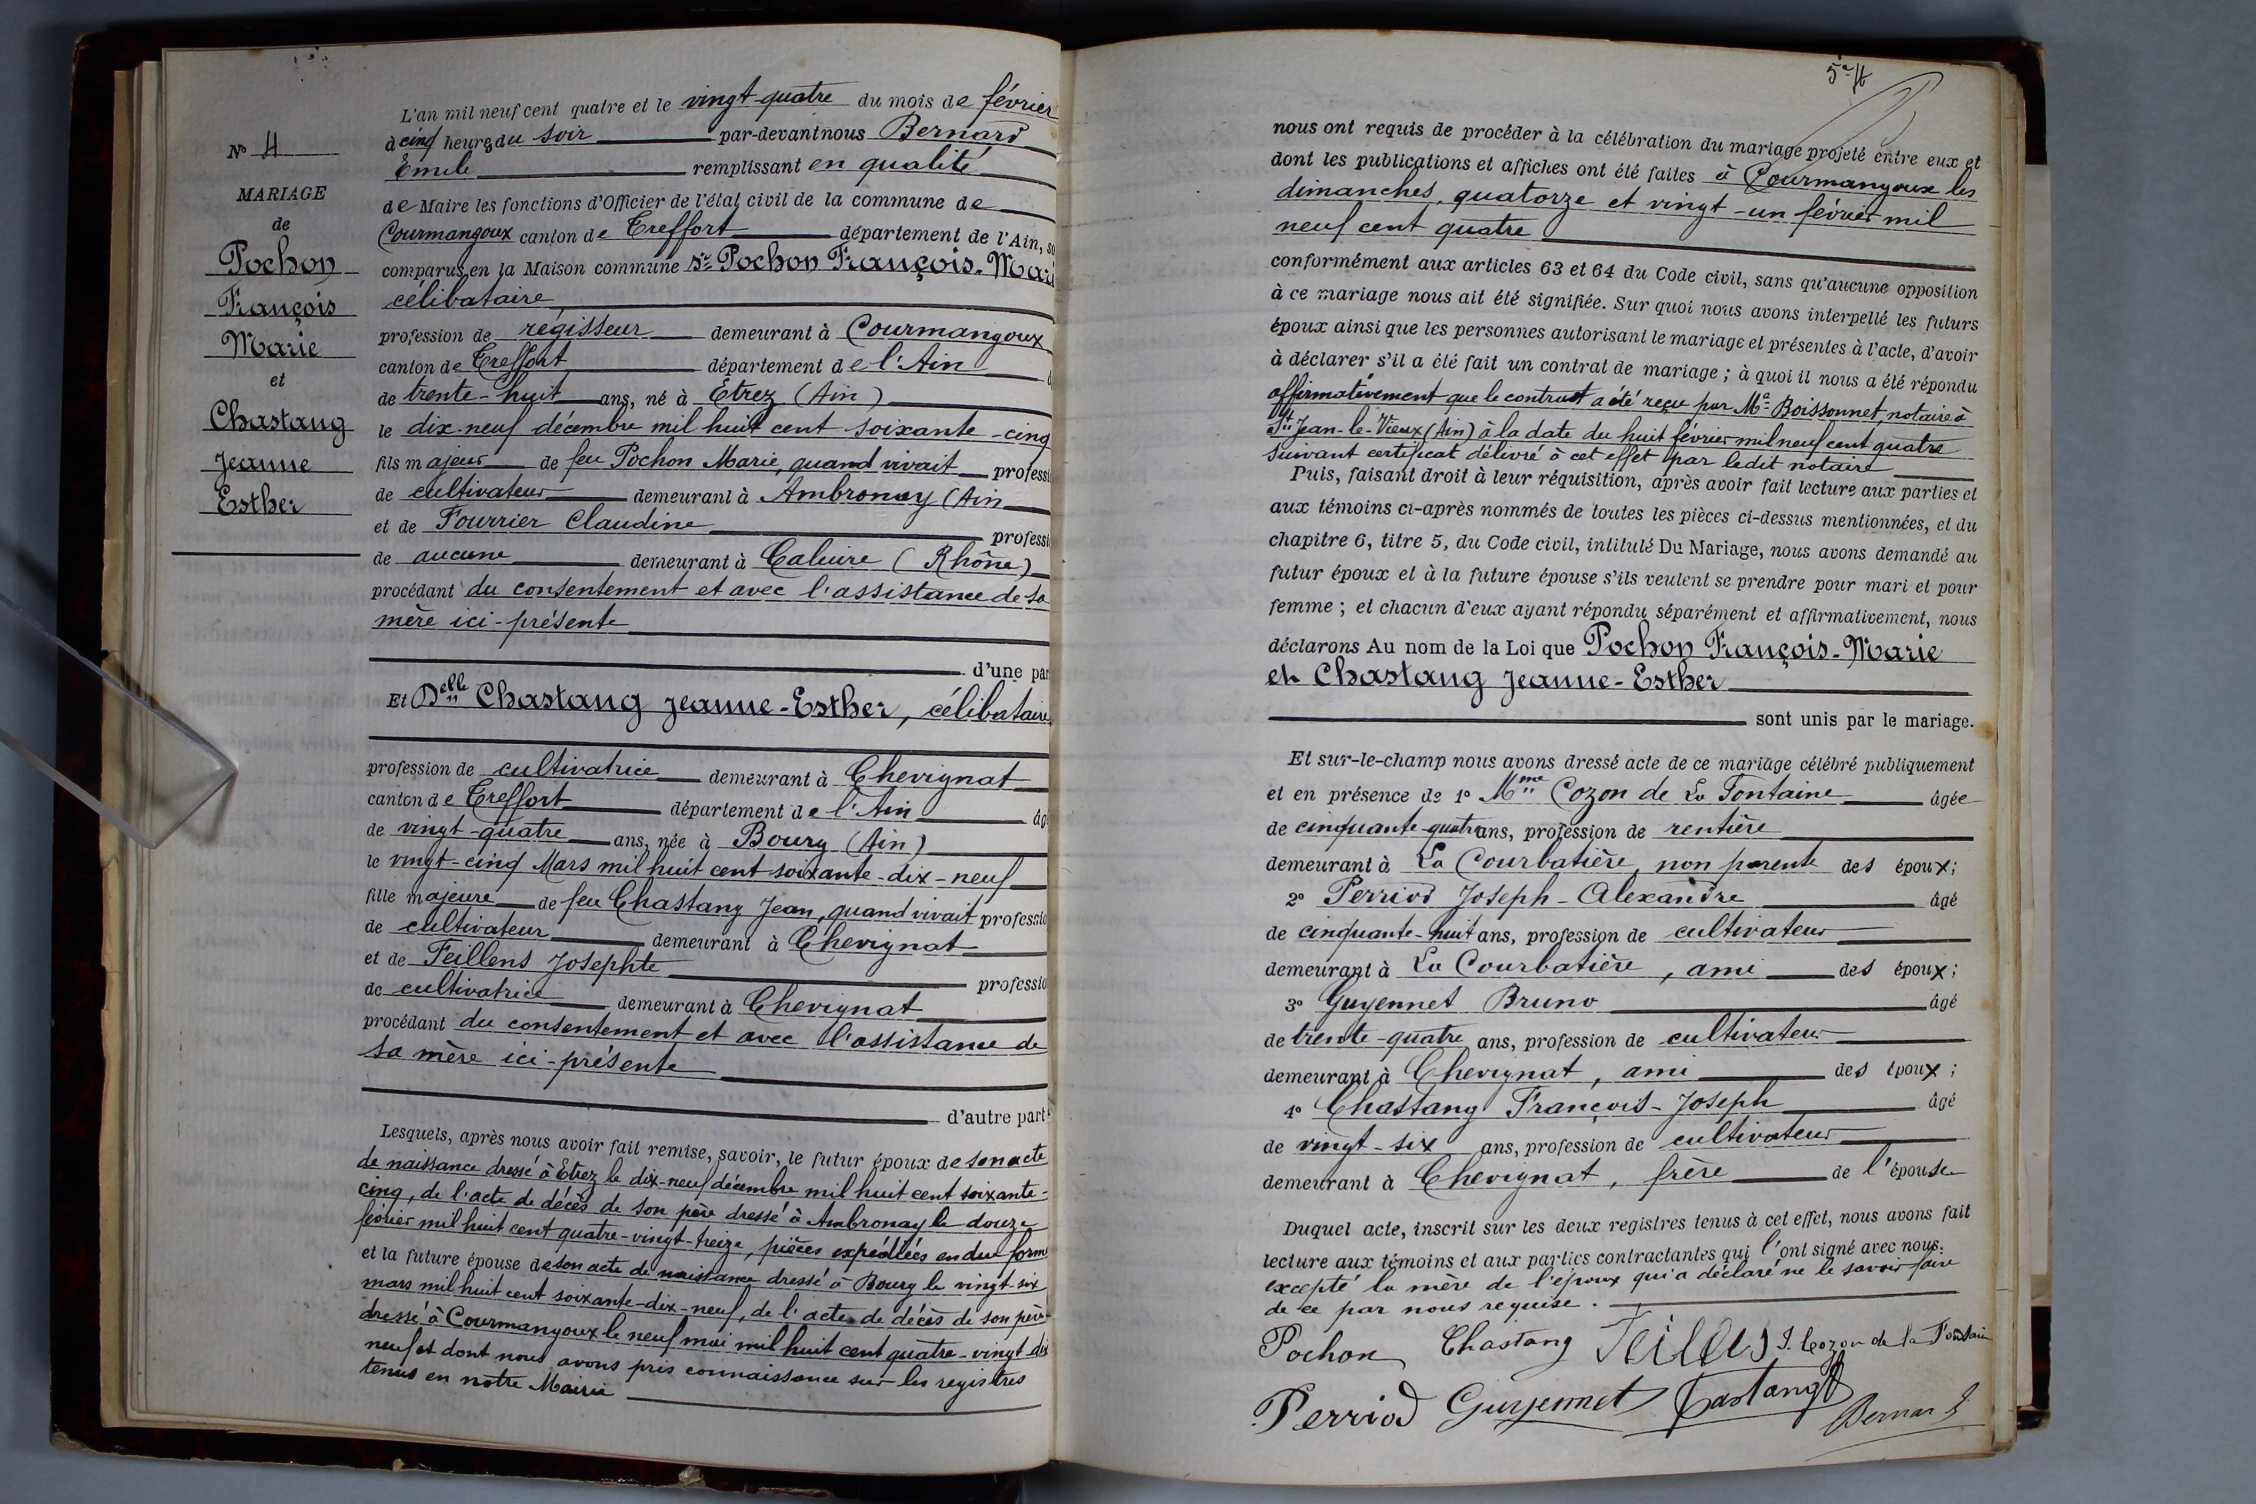 N° 4
MARIAGE
de
Pochon
François
Marie
et
Chastang
Jeanne
Esther
L'an mil neuf cent quatre et le vingt-quatre du mois de février
à cinq heures du soir par-devant nous Bernard
Emile remplissant en qualité
de Maire les fonctions d'Officier de l'état civil de la commune de
Courmangoux canton de Treffort département de l'Ain, so
comparus en la Maison commune Sr Pochon François-Mari
célibataire
profession de régisseur demeurant à Courmangoux
canton de Treffort département de l'Ain
de trente-huit ans, né à Etrez (Ain)
le dix-neuf décembre mil huit cent soixante-cinq
fils majeur de feu Pochon Marie, quand vivait professi
de cultivateur demeurant à Ambronay (Ain
et de Fourrier Claudine professi
de aucune demeurant à Caluire (Rhône)
procédant du consentement et avec l'assistance de sa
mère ici-présente
d'une par
Et Delle Chastang Jeanne-Esther, célibataire,
profession de cultivatrice demeurant à Chevignat
canton de Treffort département de l'Ain âg
de vingt-quatre ans, née à Bourg (Ain)
le vingt-cinq Mars mil huit cent soixante-dix-neuf
fille majeure de feu Chastang Jean, quand vivait professio
de cultivateur demeurant à Chevignat
et de Feillens Josephte professio
de cultivatrice demeurant à Chevignat
procédant du consentement et avec l'assistance de
sa mère ici-présente
d'autre part
Lesquels, après nous avoir fait remise, savoir, le futur époux de son acte
de naissance dressé à Etrez le dix-neuf décembre mil huit cent soixante-
cinq, de l'acte de décès de son père dressé à Ambronay le douze
février mil huit cent quatre-vingt-treize, pièces expédiées en due form
et la future épouse de son acte de naissance dressé à Bourg le vingt-six
mars mil huit cent soixante-dix-neuf, de l'acte de décès de son père
dressé à Courmangoux le neuf mai mil huit cent quatre-vingt-dix
neuf et dont nous avons pris connaissance sur les registres
tenus en notre Mairie
nous ont requis de procéder à la célébration du mariage projeté entre eux et
dont les publications et affiches ont été faites à Courmangoux les
dimanches, quatorze et vingt-un février mil
neuf cent quatre
conformément aux articles 63 et 64 du Code civil, sans qu'aucune opposition
à ce mariage nous ait été signifiée. Sur quoi nous avons interpellé les futurs
époux ainsi que les personnes autorisant le mariage et présentes à l'acte, d'avoir
à déclarer s'il a été fait un contrat de mariage ; à quoi il nous a été répondu
affirmativement que le contrat a été reçu par Me Boissonnet, notaire à
St Jean-le-Vieux (Ain) à la date du huit février mil neuf cent quatre
suivant certificat délivré à cet effet par ledit notaire
Puis, faisant droit à leur réquisition, après avoir fait lecture aux parties et
aux témoins ci-après nommés de toutes les pièces ci-dessus mentionnées, et du
chapitre 6, titre 5, du Code civil, intitulé Du Mariage, nous avons demandé au
futur époux et à la future épouse s'ils veulent se prendre pour mari et pour
femme ; et chacun d'eux ayant répondu séparément et affirmativement, nous
déclarons Au nom de la Loi que Pochon François-Marie
et Chastang Jeanne-Esther
sont unis par le mariage.
Et sur-le-champ nous avons dressé acte de ce mariage célébré publiquement
et en présence de 1° Mme Cozon de La Fontaine âgée
de cinquante-quatre ans, profession de rentière
demeurant à La Courbatière, non parente des époux ;
2° Perriod Joseph-Alexandre âgé
de cinquante-huit ans, profession de cultivateur
demeurant à La Courbatière, ami des époux ;
3° Guyennet Bruno âgé
de trente-quatre ans, profession de cultivateur
demeurant à Chevignat, ami des époux ;
4° Chastang François-Joseph âgé
de vingt-six ans, profession de cultivateur
demeurant à Chevignat, frère de l'épouse
Duquel acte, inscrit sur les deux registres tenus à cet effet, nous avons fait
lecture aux témoins et aux parties contractantes qui l'ont signé avec nous.
excepté la mère de l'époux qui a déclaré ne le savoir faire
de ce par nous requise.
Pochon Chastang J. Cozon de la Fontaine
Perriod Guyennet Bernard